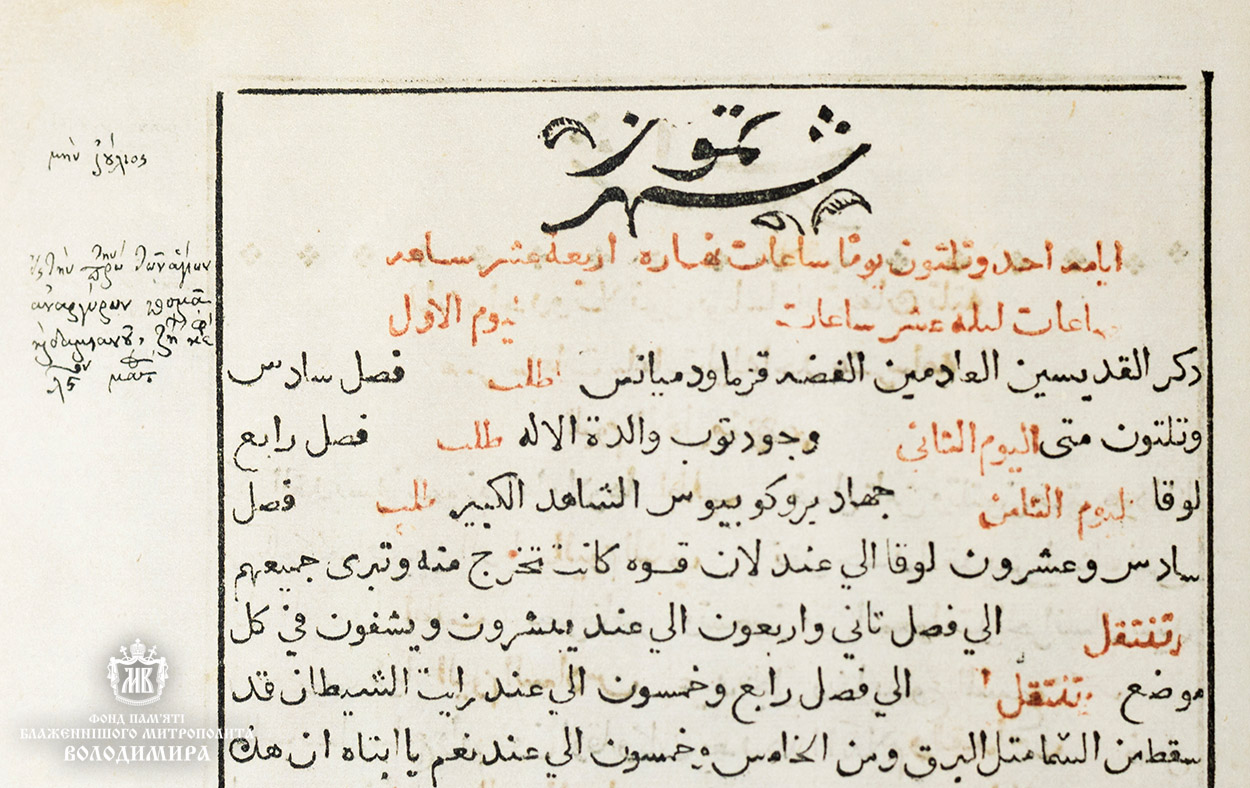 شهر تموز
ايامه احد وتلتون يومًا ساعات نهاره اربعة عشر ساعه
ساعات ليله عشر ساعات ليوم الاول
دكر القديسين العادمين الفضه قزما ودميانس اطلب فصل سادس
وتلتون متى اليوم التاني وجود توب والدة الاله طلب فصل رابع
لوقا ليوم الثامن جهاد بروكوبيوس الشاهد الكبير طلب فصل
سادس وعشرون لوقا الي عند لان قوه كانت تخرج منه وتبرى جميعهم
وتنتقل الي فصل تاني واربعون الي عند يبشرون ويشفون في كل
موضع تنتقل الي فصل رابع وخمسون الي عند رايت الشيطان قد
سقط من السما متل البرق ومن الخامس وخمسون الي عند نعم يا ابتاه ان هذ
μὴν ἰούλιος
ἀναργύρων
ФОНД ПАМ'ЯТІ
БЛАЖЕННІШОГО МИТРОПОЛИТА
ВОЛОДИМИРА